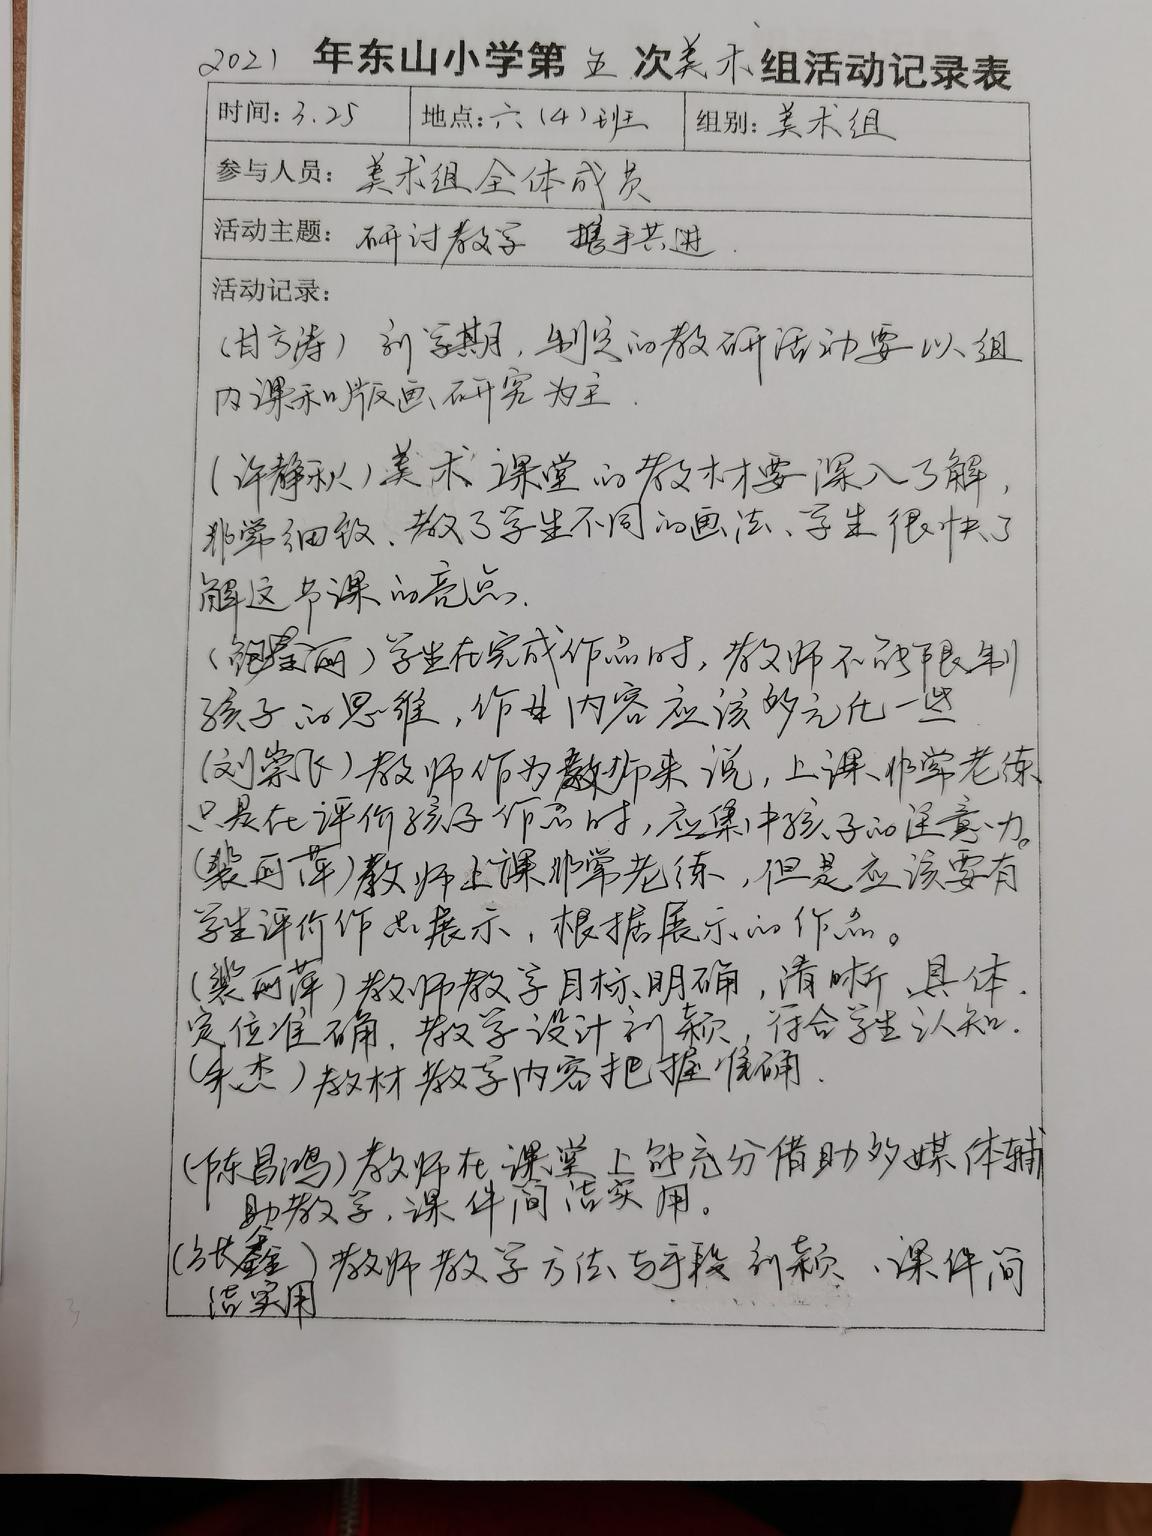 2021 年东山小学第 五 次 美术 组活动记录表
时间: 3.25 地点: 六(4)班 组别: 美术组
参与人员: 美术组全体成员
活动主题: 研讨教学 携手共进.
活动记录:
(甘方涛) 新学期, 制定的教研活动要以组
内课和版画研究为主.
(许静秋) 美术课堂的教材要深入了解,
非常细致、教了学生不同的画法、学生很快了
解这节课的亮点.
丽) 学生在完成作品时, 教师不能限制
孩子的思维, 作业内容应该多元化一些
(刘崇飞) 教师作为教师来说, 上课非常老练
只是在评价孩子作品时, 应集中孩子的注意力。
(裴丽萍) 教师上课非常老练, 但是应该要有
学生评价作品展示, 根据展示的作品。
(裴丽萍) 教师教学目标明确, 清晰、具体.
定位准确, 教学设计新颖, 符合学生认知.
(朱杰) 教材教学内容把握准确.
(陈昌鸿) 教师在课堂上能充分借助多媒体辅
助教学, 课件简洁实用。
鑫) 教师教学方法与手段新颖、课件简
洁实用